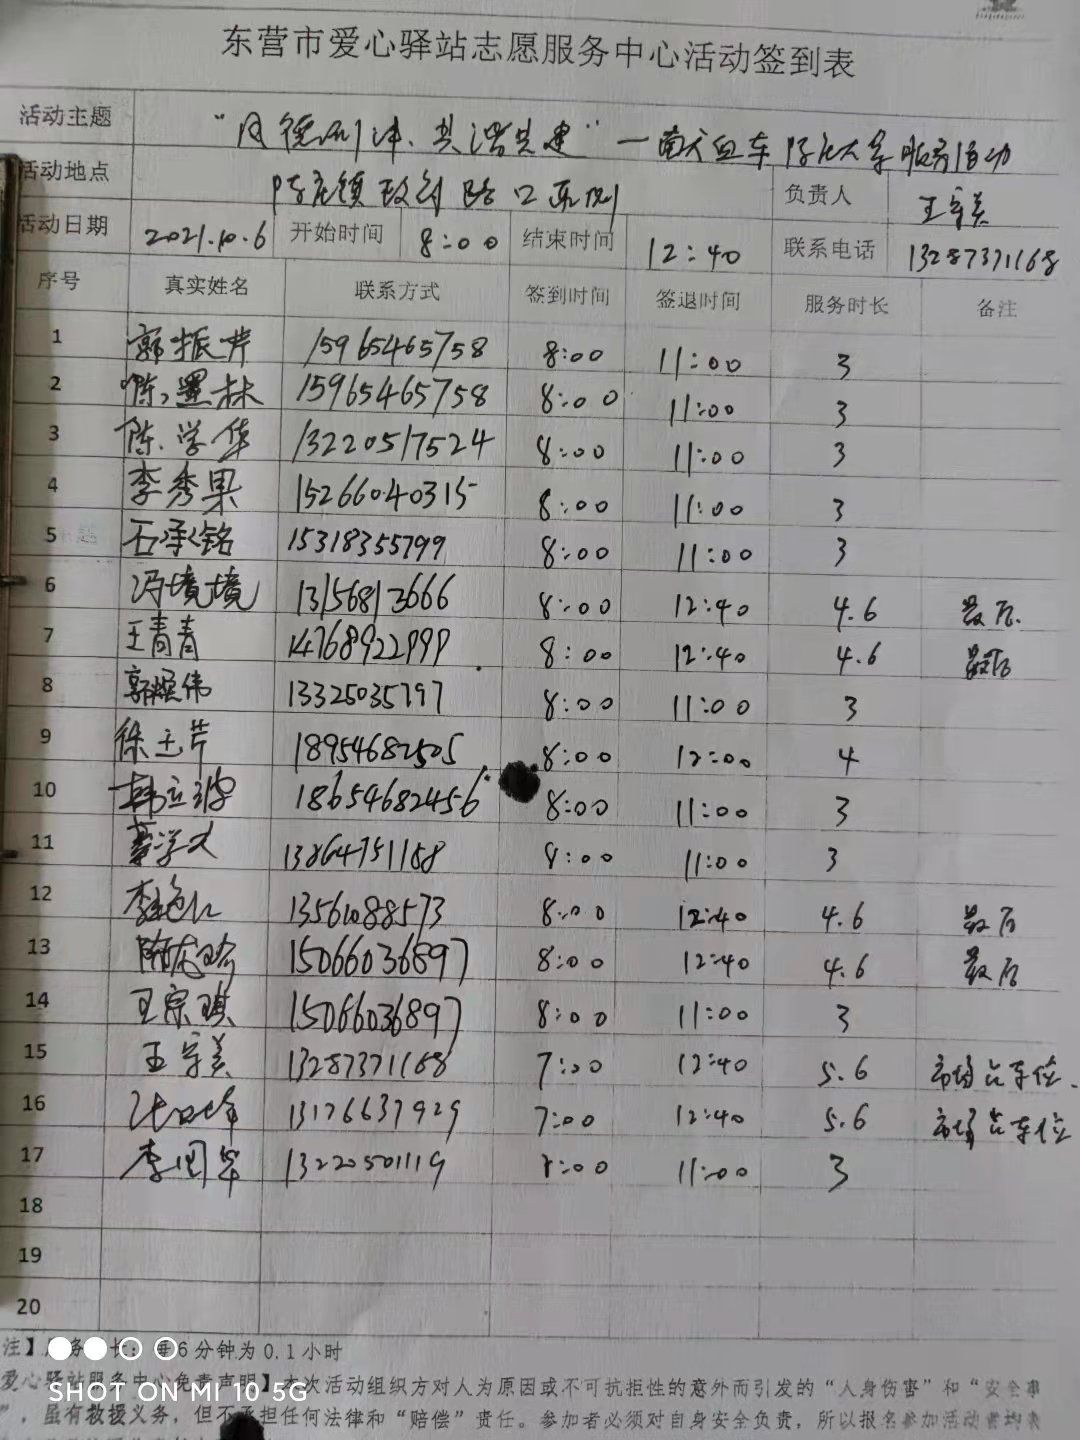 东营市爱心驿站志愿服务中心活动签到表
活动主题 共建" 一
活动地点 路口东侧 负责人 王守美
活动日期 2021.10.6 开始时间 8:00 结束时间 12:40 联系电话 13287371168
序号 真实姓名 联系方式 签到时间 签退时间 服务时长 备注
1 郭振芹 15965465758 8:00 11:00 3
2 陈 林 15965465758 8:00 11:00 3
3 陈学华 13220517524 8:00 11:00 3
4 李秀果 15266040315 8:00 11:00 3
5 石承铭 15318355799 8:00 11:00 3
6 冯境境 13156813666 8:00 12:40 4.6 最后
7 王青青 14768922999 8:00 12:40 4.6 最后
8 郭 伟 13325035797 8:00 11:00 3
9 徐玉芹 18954682505 8:00 12:00 4
10 韩立 18654682456 8:00 11:00 3
11 13864751168 8:00 11:00 3
12 李 13561088573 8:00 12:40 4.6 最后
13 15066036897 8:00 12:40 4.6 最后
14 王宗琪 15066036897 8:00 11:00 3
15 王守美 13287371168 7:00 12:40 5.6 市场占车位.
16 13176637929 7:00 12:40 5.6 市场占车位
17 李国华 13220501119 8:00 11:00 3
18
19
20
注】 务 长：每6分钟为0.1小时
爱心驿站服务中心免责声明】本次活动组织方对人为原因或不可抗拒性的意外而引发的“人身伤害”和“安全事
”，虽有救援义务，但不承担任何法律和“赔偿”责任。参加者必须对自身安全负责，所以报名参加活动者均表
SHOT ON MI 10 5G